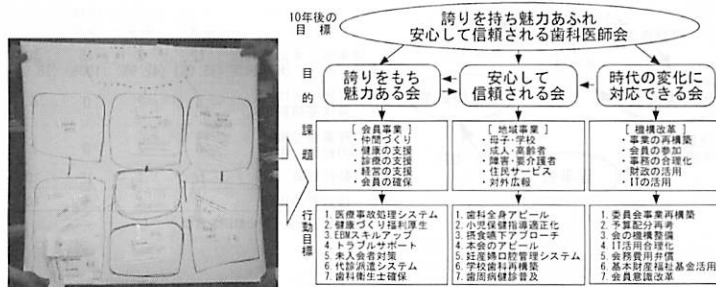 10年後の
目標
誇りを持ち魅力あふれ
安心して信頼される歯科医師会
目的
誇りをもち
魅力ある会
安心して
信頼される会
時代の変化に
対応できる会
課題
[ 会員事業 ]
・仲間づくり
・健康の支援
・診療の支援
・経営の支援
・会員の確保
[ 地域事業 ]
・母子・学校
・成人・高齢者
・障害・要介護者
・住民サービス
・対外広報
[ 機構改革 ]
・事業の再構築
・会員の参加
・事務の合理化
・財政の活用
・ITの活用
行動目標
1. 医療事故処理システム
2. 健康づくり福利厚生
3. EBMスキルアップ
4. トラブルサポート
5. 未入会者対策
6. 代診派遣システム
7. 歯科衛生士確保
1. 歯科全身アピール
2. 小児保健指導適正化
3. 摂食嚥下アプローチ
4. 本会のアピール
5. 妊産婦口腔管理システム
6. 学校歯科再構築
7. 歯周病健診普及
1. 委員会事業再構築
2. 予算配分再考
3. 会の機構整備
4. IT活用合理化
5. 会務費用弁償
6. 基本財産福祉基金活用
7. 会員意識改革